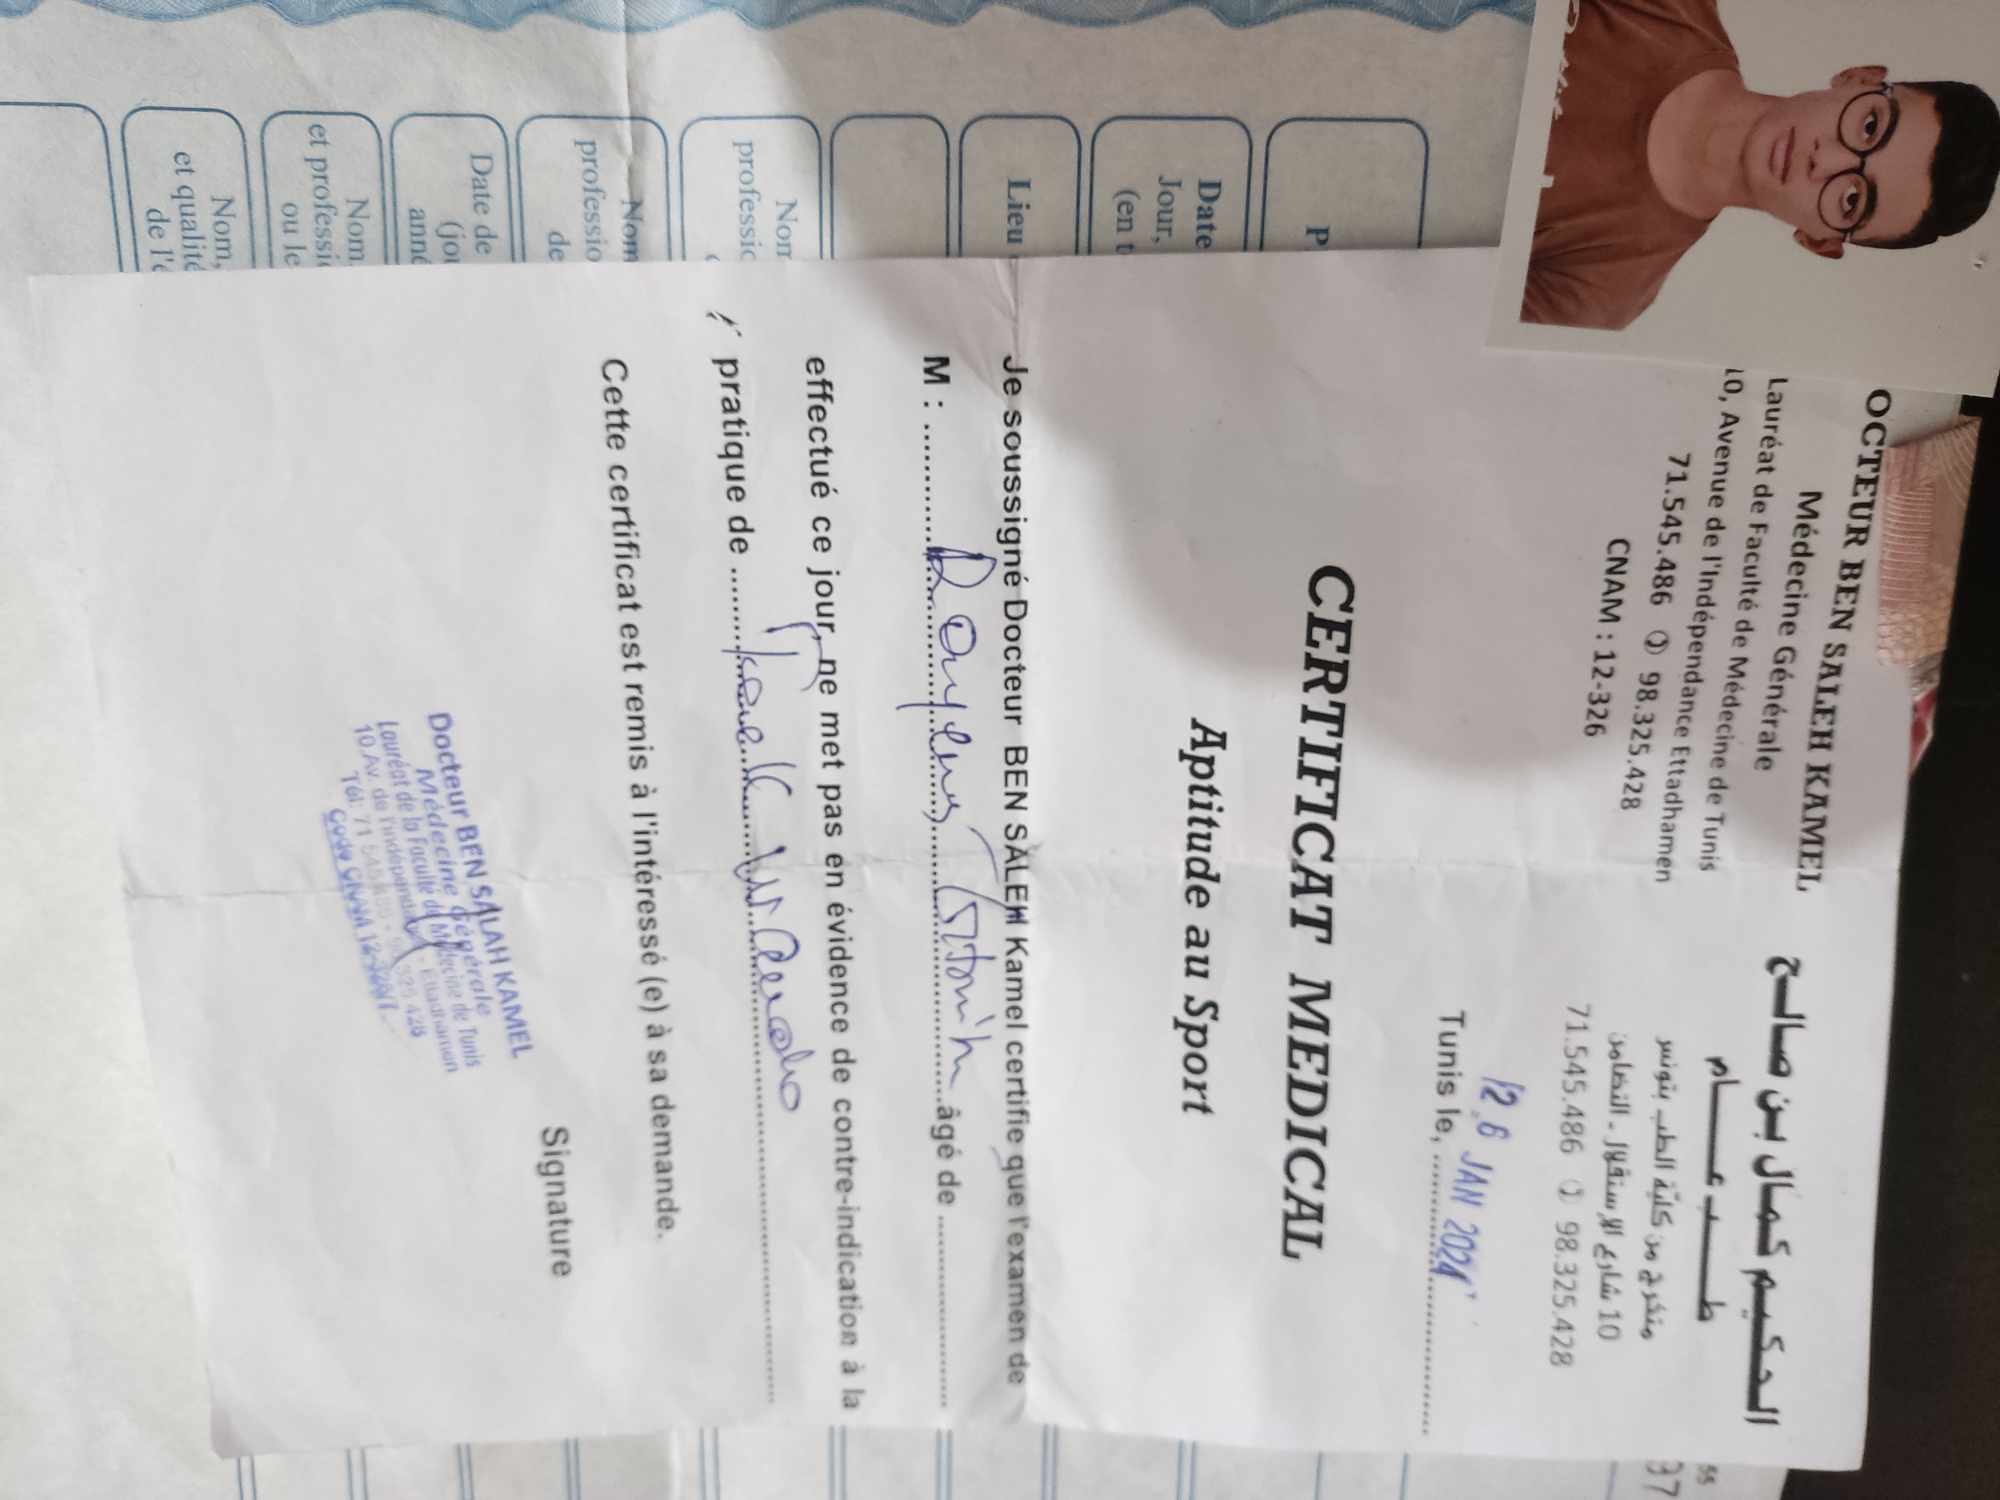 OCTEUR BEN SALEH KAMEL
Médecine Générale
Lauréat de Faculté de Médecine de Tunis
10, Avenue de l'Indépendance Ettadhamen
71.545.486 ✆ 98.325.428
CNAM : 12-326
الحكيم كمال بن صالح
طب عام
متخرج من كلية الطب بتونس
10 شارع الإستقلال - التضامن
71.545.486 ✆ 98.325.428
Tunis le, 26 JAN 2024
CERTIFICAT MEDICAL
Aptitude au Sport
Je soussigné Docteur BEN SALEH Kamel certifie que l'examen de
M : âgé de
effectué ce jour, ne met pas en évidence de contre-indication à la
pratique de
Cette certificat est remis à l'intéressé (e) à sa demande.
Signature
Docteur BEN SALAH KAMEL
Médecine Générale
Lauréat de la Faculté de Médecine de Tunis
10 Av. de l'indépendance - Ettadhamen
Tél: 71 545 486 - 98 325 428
P
Date
Jour,
(en t
Lieu
Nom
professio
Nom
professio
de
Date de
(jou
anné
Nom,
et professi
ou le
Nom,
et qualité
de l'é
55
97